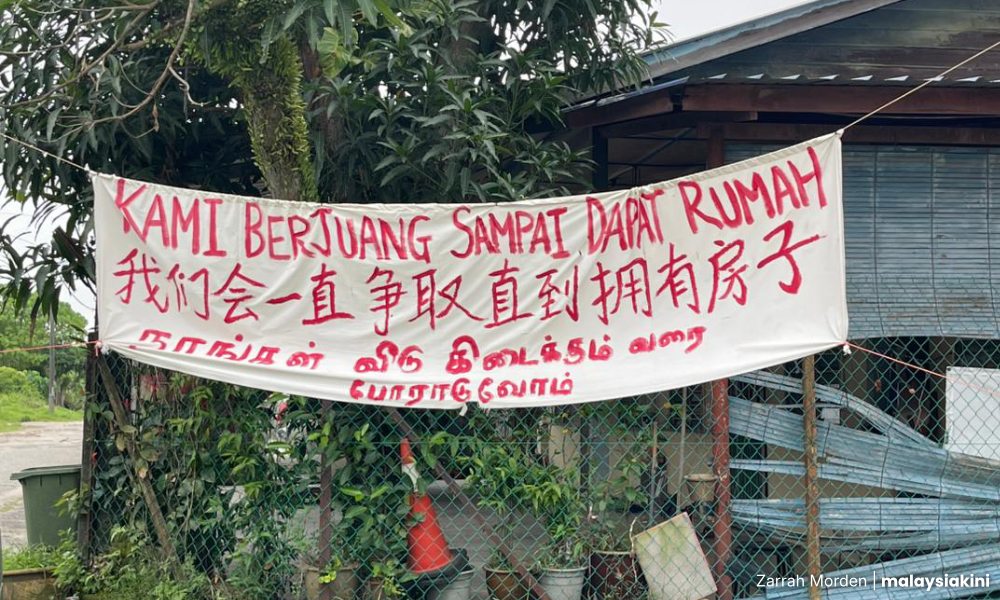 KAMI BERJUANG SAMPAI DAPAT RUMAH
我们会一直争取直到拥有房子
நாங்கள் விடு கிடைக்தம் வரை
போராடுவோம்
Zarrah Morden | malaysiakini